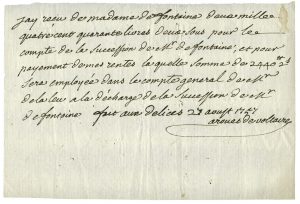 jay reçu de madame de fontaine deux mille
quatre cent quarante livres deux sous pour le
compte de la succession de Mr de fontaine, et pour
payement de mes rentes laquelle somme de 2440ʰ 2ˢ
sera employée dans le compte general de Mr
de la leu a la décharge de la succession de Mr
de fontaine fait aux delices 29 aoust 1757
arouet de voltaire